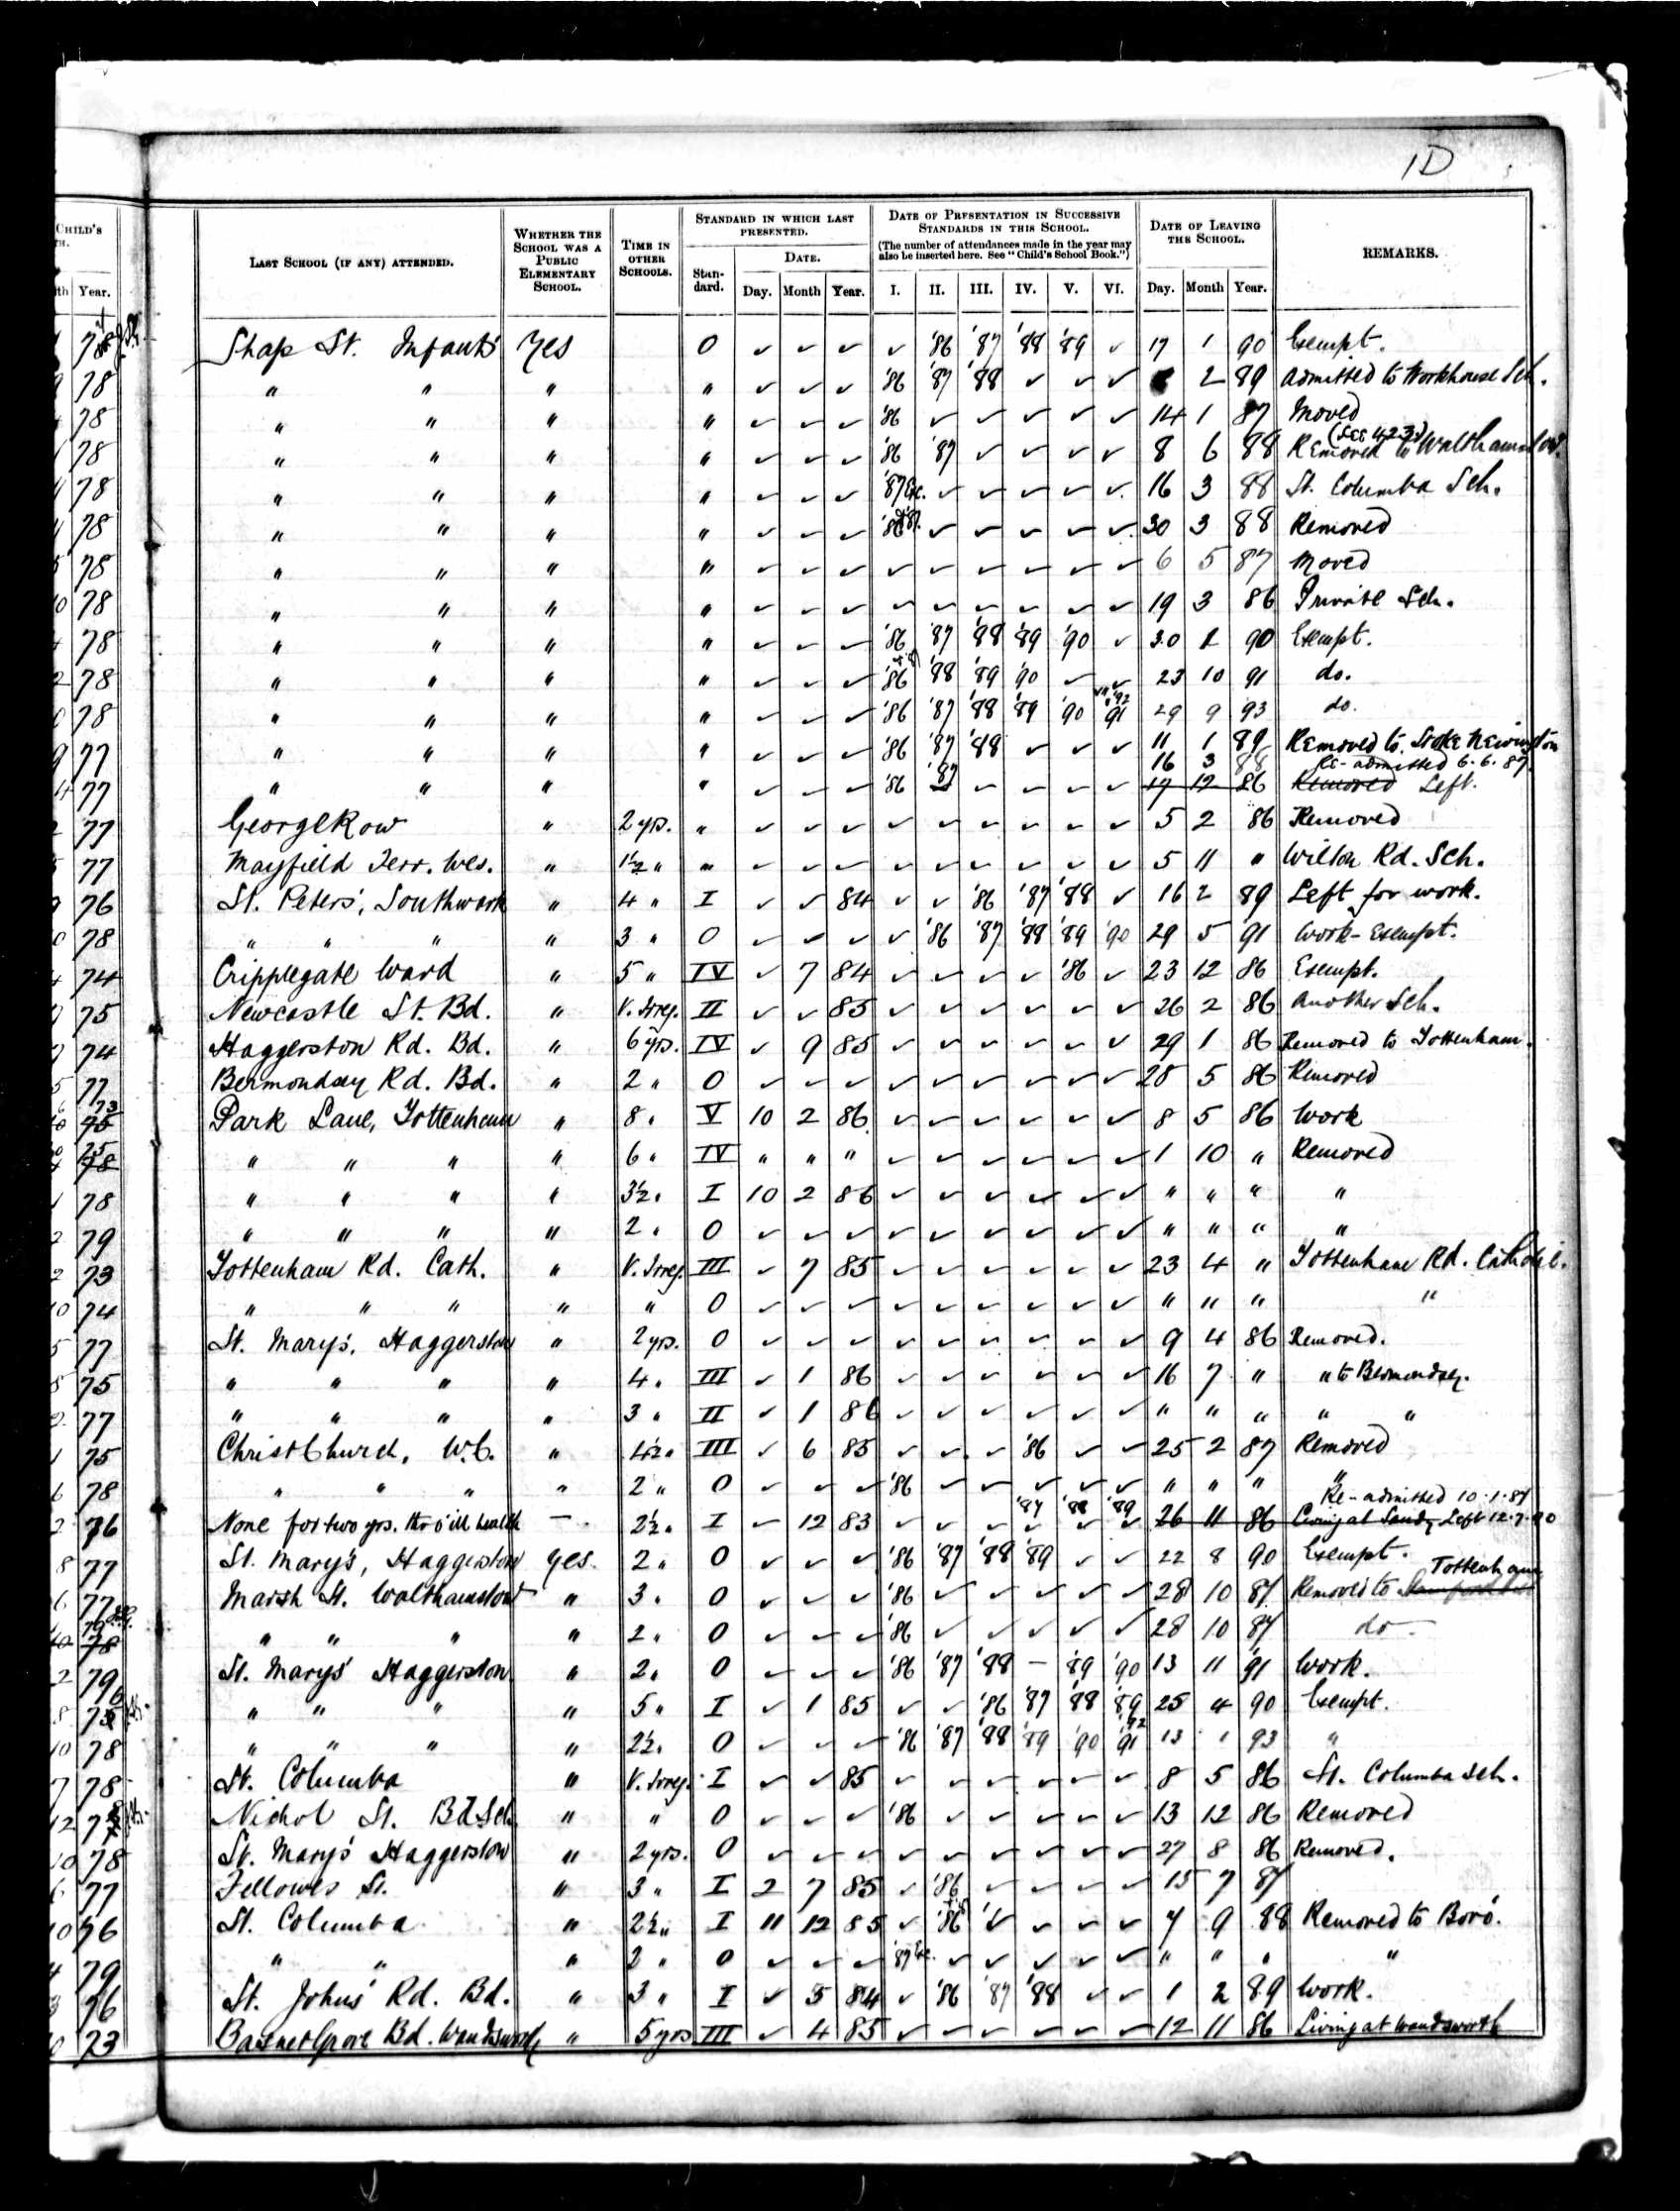 1D
CHILD'S
TH.
LAST SCHOOL (IF ANY) ATTENDED. WHETHER THE SCHOOL WAS A PUBLIC ELEMENTARY SCHOOL. TIME IN OTHER SCHOOLS. STANDARD IN WHICH LAST PRESENTED. DATE OF PRESENTATION IN SUCCESSIVE STANDARDS IN THIS SCHOOL. DATE OF LEAVING THE SCHOOL. REMARKS.
(The number of attendances made in the year may also be inserted here. See "Child's School Book.")
th Year. Standard. DATE. Day. Month Year. I. II. III. IV. V. VI. Day. Month Year.
78 Shap St. Infants' Yes O ✓ ✓ ✓ ✓ '86 '87 '88 '89 ✓ 17 1 90 Exempt.
78 " " " " ✓ ✓ ✓ '86 '87 '88 ✓ ✓ ✓ 2 89 Admitted to Workhouse Sch.
78 " " " " ✓ ✓ ✓ '86 ✓ ✓ ✓ ✓ ✓ 14 1 87 Moved
78 " " " " ✓ ✓ ✓ '86 '87 ✓ ✓ ✓ ✓ 8 6 88 Removed to Walthamstow. (See 423)
78 " " " " ✓ ✓ ✓ '87 Ex. ✓ ✓ ✓ ✓ ✓ 16 3 88 St. Columba Sch.
78 " " " " ✓ ✓ ✓ '86 ✓ ✓ ✓ ✓ ✓ 30 3 88 Removed
78 " " " " ✓ ✓ ✓ ✓ ✓ ✓ ✓ ✓ ✓ 6 5 87 Moved
78 " " " " ✓ ✓ ✓ ✓ ✓ ✓ ✓ ✓ ✓ 19 3 86 Private Sch.
78 " " " " ✓ ✓ ✓ '86 '87 '88 '89 '90 ✓ 30 1 90 Exempt.
78 " " " " ✓ ✓ ✓ '86 '88 '89 '90 ✓ ✓ 23 10 91 do.
78 " " " " ✓ ✓ ✓ '86 '87 '88 '89 '90 '91 VII '92 29 9 93 do.
77 " " " " ✓ ✓ ✓ '86 '87 '88 ✓ ✓ ✓ 11 1 89 Removed to Stoke Newington
16 3 88 Re-admitted 6.6.87.
77 " " " " ✓ ✓ ✓ '86 '87 ✓ ✓ ✓ ✓ 17 12 86 Removed Left.
77 George Row " 2 yrs. " ✓ ✓ ✓ ✓ ✓ ✓ ✓ ✓ ✓ 5 2 86 Removed
77 Mayfield Terr. Wes. " 1½ " " ✓ ✓ ✓ ✓ ✓ ✓ ✓ ✓ ✓ 5 11 " Wilton Rd. Sch.
76 St. Peters', Southwark " 4 " I ✓ ✓ 84 ✓ ✓ '86 '87 '88 ✓ 16 2 89 Left for work.
78 " " " " 3 " O ✓ ✓ ✓ ✓ '86 '87 '88 '89 '90 29 5 91 Work - Exempt.
74 Cripplegate Ward " 5 " IV ✓ 7 84 ✓ ✓ ✓ ✓ '86 ✓ 23 12 86 Exempt.
75 Newcastle St. Bd. " V. Irreg. II ✓ ✓ 85 ✓ ✓ ✓ ✓ ✓ ✓ 26 2 86 Another Sch.
74 Haggerston Rd. Bd. " 6 yrs. IV ✓ 9 85 ✓ ✓ ✓ ✓ ✓ ✓ 29 1 86 Removed to Tottenham.
77 Bermondsey Rd. Bd. " 2 " O ✓ ✓ ✓ ✓ ✓ ✓ ✓ ✓ ✓ 28 5 86 Removed
73 75 Park Lane, Tottenham " 8 " V 10 2 86 ✓ ✓ ✓ ✓ ✓ ✓ 8 5 86 Work
75 78 " " " " 6 " IV " " " ✓ ✓ ✓ ✓ ✓ ✓ 1 10 " Removed
78 " " " " 3½ " I 10 2 86 ✓ ✓ ✓ ✓ ✓ ✓ " " " "
79 " " " " 2 " O ✓ ✓ ✓ ✓ ✓ ✓ ✓ ✓ ✓ " " " "
73 Tottenham Rd. Cath. " V. Irreg. III ✓ 7 85 ✓ ✓ ✓ ✓ ✓ ✓ 23 4 " Tottenham Rd. Catholic.
74 " " " " " O ✓ ✓ ✓ ✓ ✓ ✓ ✓ ✓ ✓ " " " "
77 St. Mary's, Haggerston " 2 yrs. O ✓ ✓ ✓ ✓ ✓ ✓ ✓ ✓ ✓ 9 4 86 Removed.
75 " " " " 4 " III ✓ 1 86 ✓ ✓ ✓ ✓ ✓ ✓ 16 7 " " to Bermondsey.
77 " " " " 3 " II ✓ 1 86 ✓ ✓ ✓ ✓ ✓ ✓ " " " " "
75 Christ Church, W.C. " 4½ " III ✓ 6 85 ✓ ✓ ✓ '86 ✓ ✓ 25 2 87 Removed
78 " " " " 2 " O ✓ ✓ ✓ '86 ✓ ✓ ✓ ✓ ✓ " " " "
Re-admitted 10.1.87
76 None for two yrs. thro' ill health — 2½ " I ✓ 12 83 ✓ ✓ ✓ '87 '88 '89 26 11 86 Living at Sandy Left 12.7.90
77 St. Mary's, Haggerston Yes. 2 " O ✓ ✓ ✓ '86 '87 '88 '89 ✓ ✓ 22 8 90 Exempt.
77 Marsh St. Walthamstow " 3 " O ✓ ✓ ✓ '86 ✓ ✓ ✓ ✓ ✓ 28 10 87 Removed to Tottenham
78 " " " " 2 " O ✓ ✓ ✓ '86 ✓ ✓ ✓ ✓ ✓ 28 10 87 do
79 St. Marys' Haggerston " 2 " O ✓ ✓ ✓ '86 '87 '88 — '89 '90 13 11 '91 Work.
75 " " " " 5 " I ✓ 1 85 ✓ ✓ '86 '87 '88 '89 25 4 90 Exempt.
78 " " " " 2½ " O ✓ ✓ ✓ '86 '87 '88 '89 '90 '91 '92 13 1 93 "
78 St. Columba " V. Irreg. I ✓ ✓ 85 ✓ ✓ ✓ ✓ ✓ ✓ 8 5 86 St. Columba Sch.
Nichol St. Bd Sch. " " O ✓ ✓ ✓ '86 ✓ ✓ ✓ ✓ ✓ 13 12 86 Removed
78 St. Mary's Haggerston " 2 yrs. O ✓ ✓ ✓ ✓ ✓ ✓ ✓ ✓ ✓ 27 8 86 Removed.
77 Fellowes St. " 3 " I 2 7 85 ✓ '86 ✓ ✓ ✓ ✓ 15 7 87
76 St. Columba " 2½ " I 11 12 85 ✓ '86 ✓ ✓ ✓ ✓ 7 9 88 Removed to Boro'.
79 " " " 2 " O ✓ ✓ ✓ '87 Ex. ✓ ✓ ✓ ✓ ✓ " " " "
76 St. Johns' Rd. Bd. " 3 " I ✓ 5 84 ✓ '86 '87 '88 ✓ ✓ 1 2 89 Work.
73 Barnet Grove Bd. Wandsworth " 5 yrs III ✓ 4 85 ✓ ✓ ✓ ✓ ✓ ✓ 12 11 86 Living at Wandsworth